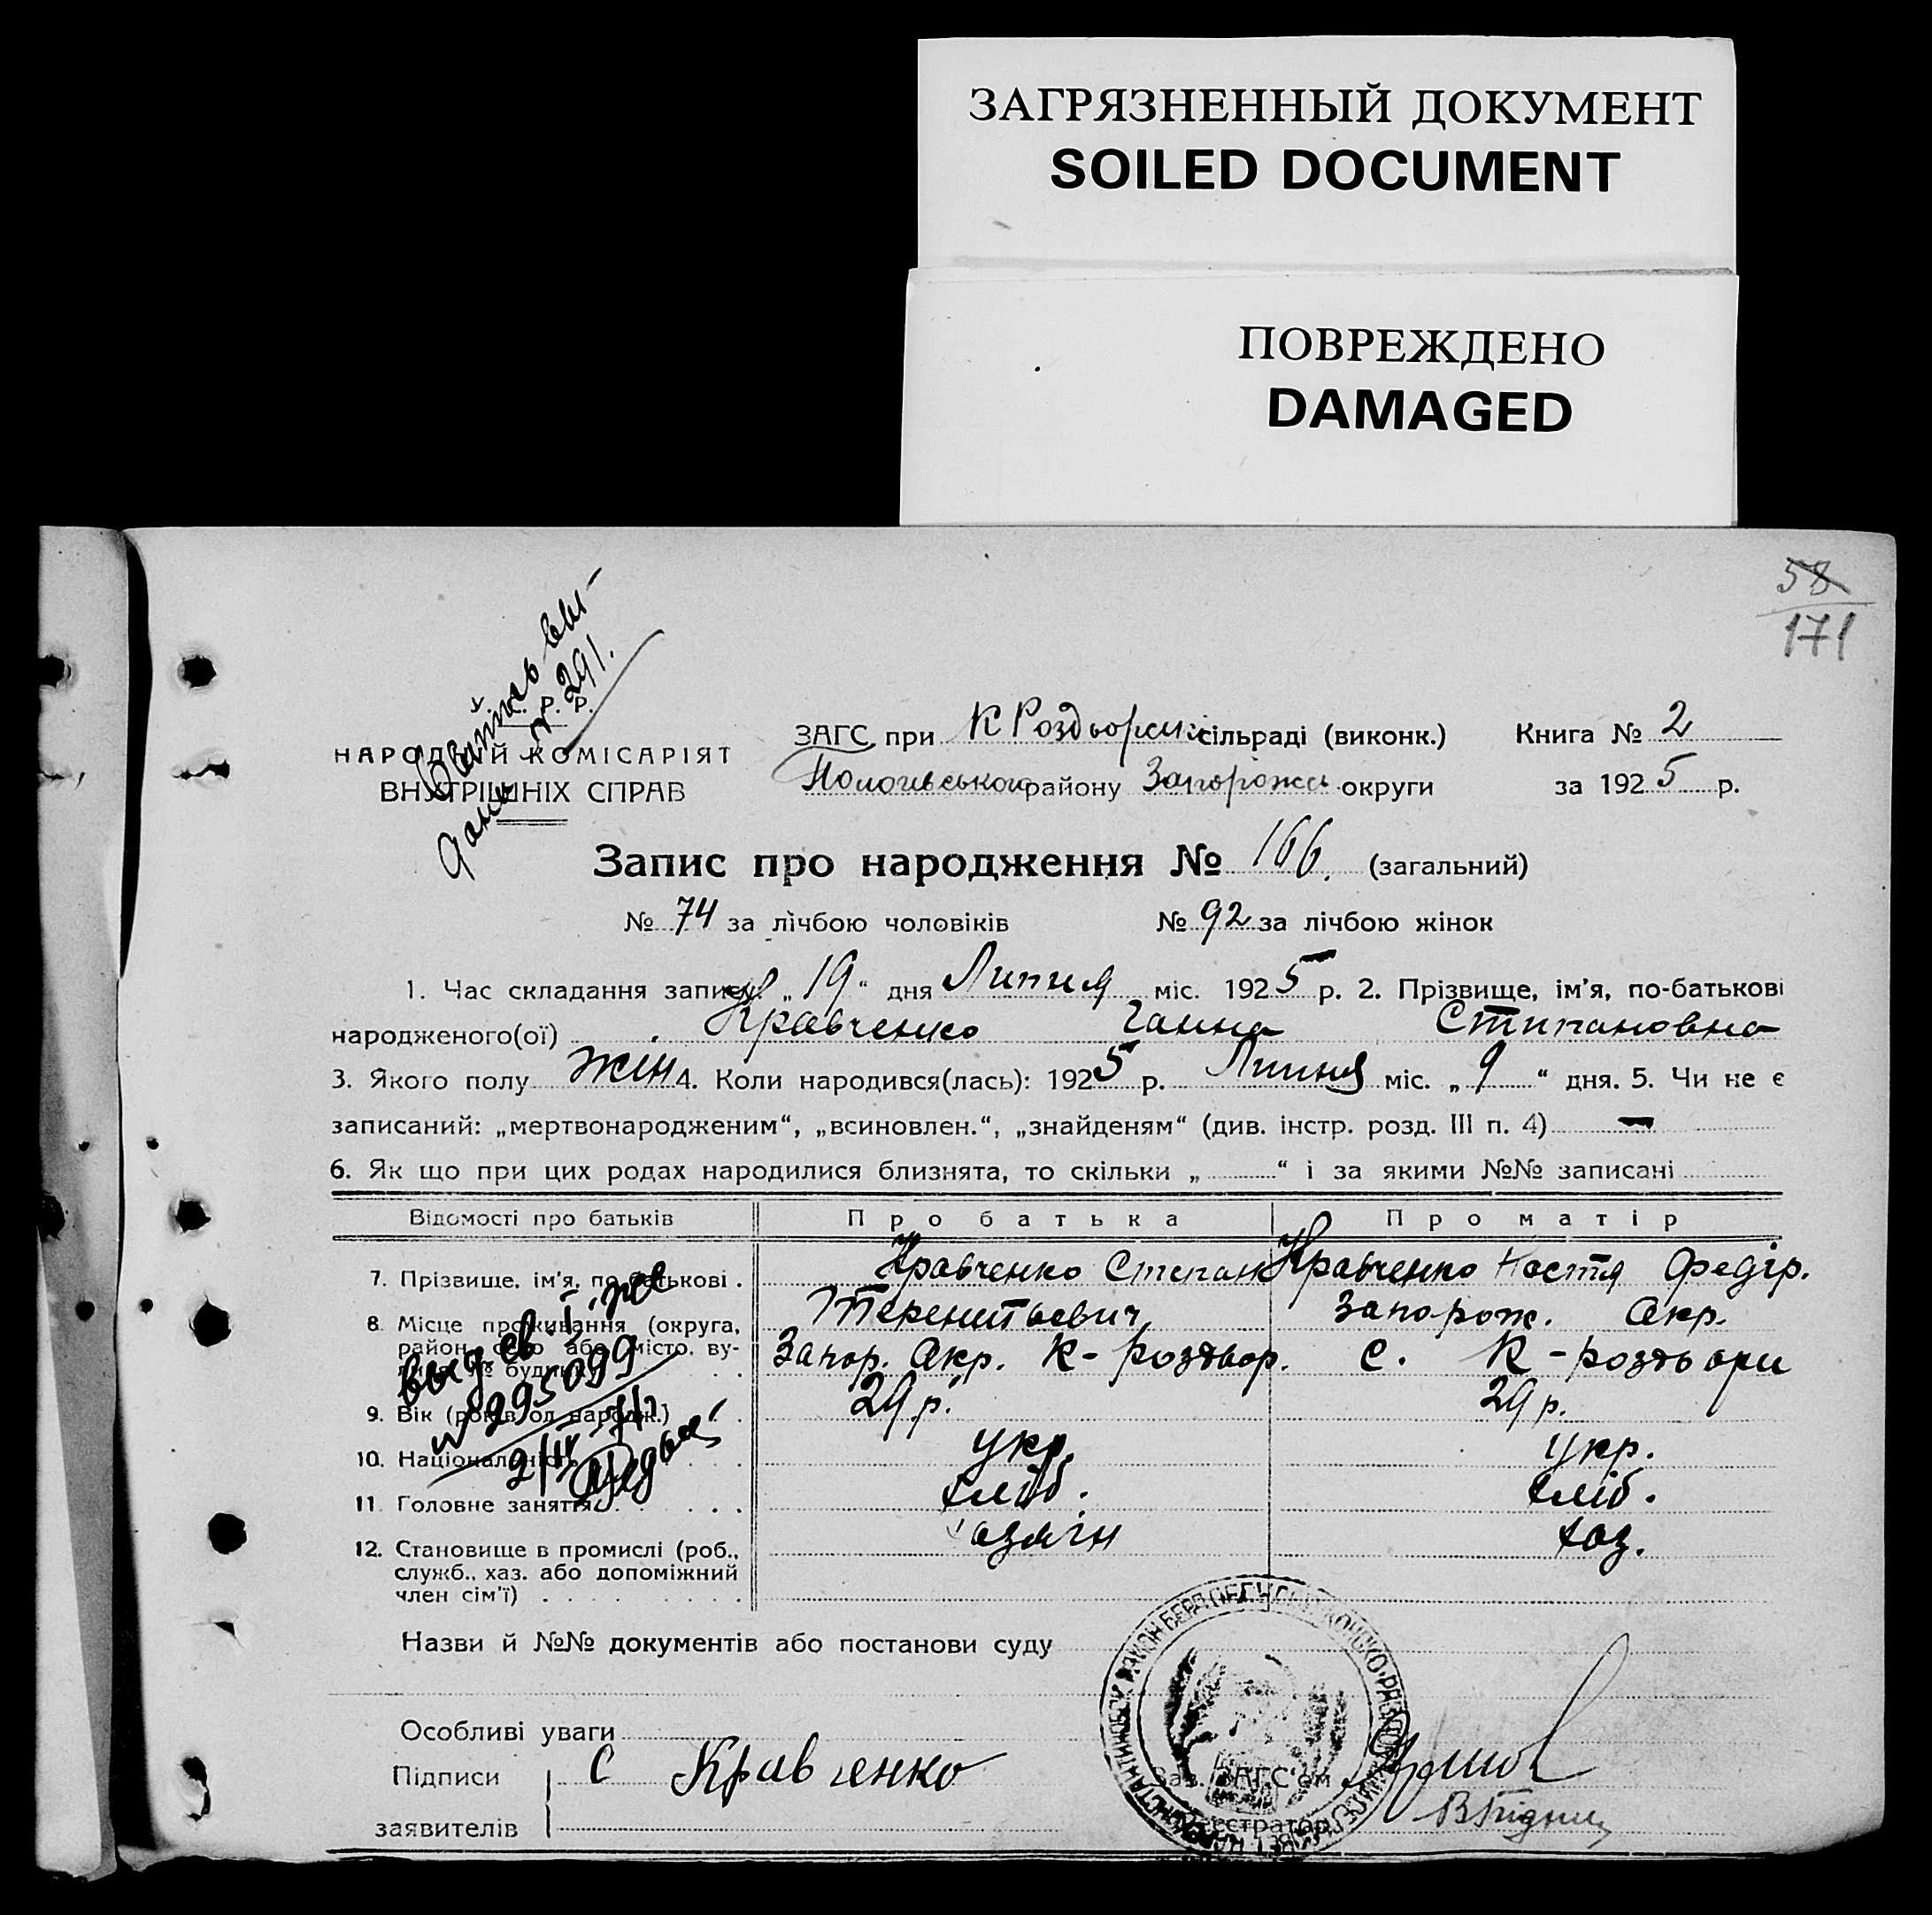 ЗАГРЯЗНЕННЫЙ ДОКУМЕНТ
SOILED DOCUMENT
ПОВРЕЖДЕНО
DAMAGED
58
171
У. С. Р. Р.
НАРОДНІЙ КОМІСАРІЯТ
ВНУТРІШНІХ СПРАВ
№ 291.
ЗАГС при К Роздорські сільраді (виконк.) Книга № 2
Пологівського району Запорожсь округи за 1925 р.
Запис про народження № 166. (загальний)
№ 74 за лічбою чоловіків № 92 за лічбою жінок
1. Час складання запису: „19“ дня Липня міс. 1925 р. 2. Прізвище, ім'я, по-батькові
народженого(ої) Кравченко Ганна Стипановна
3. Якого полу жін 4. Коли народився(лась): 1925 р. Липня міс. „9“ дня. 5. Чи не є
записаний: „мертвонародженим“, „всиновлен.“, „знайденям“ (див. інстр. розд. III п. 4) —
6. Як що при цих родах народилися близнята, то скільки „ “ і за якими №№ записані
Відомості про батьків Про батька Про матір
7. Прізвище, ім'я, по-батькові . Кравченко Степан Кравченко Настя Федір.
8. Місце проживання (округа, Терентьевич Запорож. Окр.
район, село або місто, ву- Запор. Окр. К-роздвор. с. К-роздьори
лиця, № будинку)
№ 295099
9. Вік (років од народж.) 29 р. 29 р.
10. Національність укр. укр.
11. Головне заняття хліб. хліб.
12. Становище в промислі (роб., хазяін хаз.
служб., хаз. або допоміжний
член сім'ї)
Назви й №№ документів або постанови суду
Особливі уваги
Підписи С Кравченко Зав. ЗАГС'ом
заявителів Реєстратор